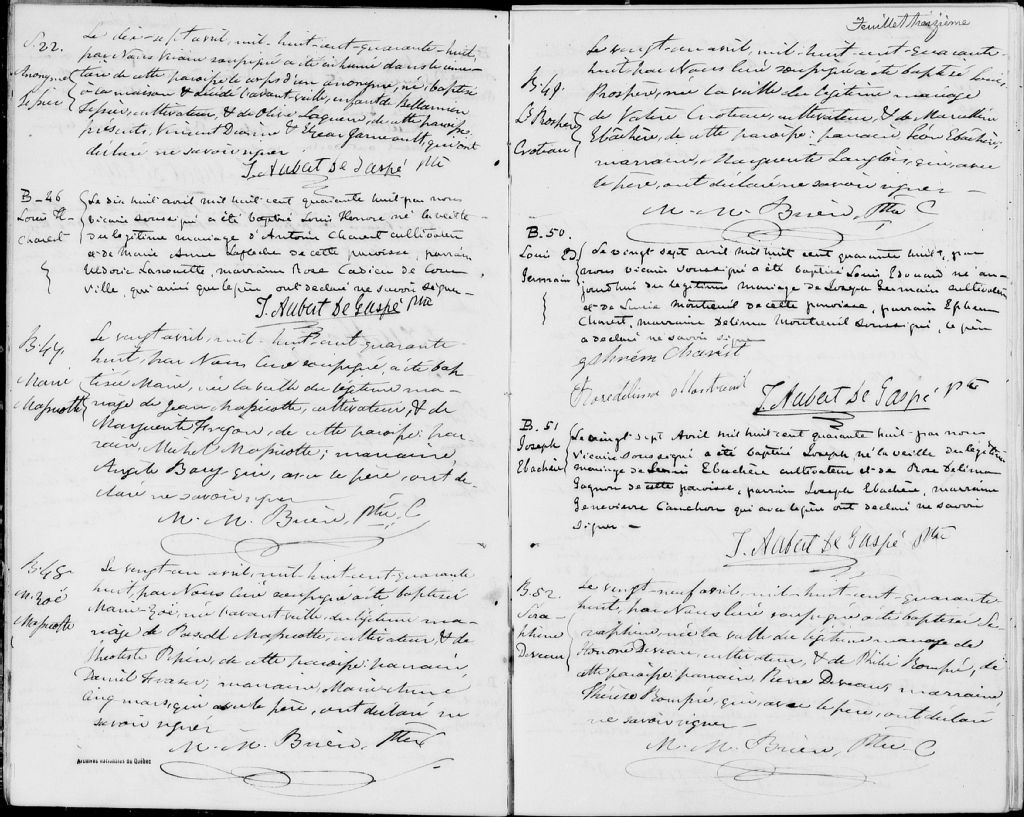 S 22.
Anonyme
Pépin
Le dix-sept avril, mil-huit-cent-quarante-huit,
par Nous Vicaire soussigné a été inhumé dans le cime-
tière de cette paroisse le corps d'un anonyme, né, baptisé
à la maison & décédé l'avant veille, enfant de Bellarmin
Pépin, cultivateur, & de Olive Laquerre, de cette paroisse.
présents, Vincent & Edgar qui ont
déclaré ne savoir signer
T. Aubert De Gaspé Ptre
B-46
Louis H-
Charest
Le dix huit avril mil huit cent quarante huit par nous
Vicaire soussigné a été baptisé Louis Honoré né la veille
du légitime mariage d'Antoin Charest cultivateur
et de Marie Anne Laflèche de cette paroisse, parrain
Uldoric Lanouette, marraine Rose Cadieu de Cour
ville, qui ainsi que le père ont déclaré ne savoir signer-
T. Aubert De Gaspé Ptre
B.47.
Marie
Mapicotte
Le vingt avril, mil-huit-cent-quarante-
huit, par Nous Curé soussigné, a été bap-
tisée Marie, née la veille du légitime ma-
riage de Jean Mapicotte, cultivateur, & de
Marguerite Frigon, de cette paroisse: par-
rain, Michel Mapicotte; marraine,
Angèle Barry qui, avec le père, ont dé-
claré ne savoir signer
M. M. Brière, Ptre C
B.48.
M. Zoé
Mapicotte
Le vingt-un avril, mil-huit-cent-quarante
huit, par Nous Curé soussigné a été baptisée
Marie-Zoé, née l'avant veille, du légitime ma-
riage de Pascal Mapicotte, cultivateur & de
Théotiste Pépin, de cette paroisse: parrain,
Daniel marraine, Marie
Cinq mars, qui avec le père, ont déclaré ne
savoir signer
M. M. Brière, Ptre C
Archives nationales du Québec
Feuillet treizième
B.49.
Ls Prosper
Croteau
Le vingt-un avril, mil-huit-cent-quarante
huit, par Nous Curé soussigné a été baptisé Louis
Prosper, né la veille du légitime mariage
de Valère Croteau, cultivateur, & de Marcelline
Ebachère, de cette paroisse: parrain, Léon Ebachère;
marraine, Marguerite Langlois, qui, avec
le père, ont déclaré ne savoir signer -
M. M. Brière, Ptre C
B.50.
Louis Ed
Germain
Le vingt sept avril mil huit cent quarante huit, par
nous vicaire soussigné a été baptisé Louis Edouard né au-
jourd'hui du légitime mariage de Joseph Germain cultivateur
et de Lucie Montreuil de cette paroisse, parrain Ephrem
Charest, marraine Delima Montreuil soussignés, le père
a déclaré ne savoir signer
Ephrem Charest
Rosedelima Montreuil
T. Aubert De Gaspé Ptre
B.51
Joseph
Ebachère
Le vingt sept Avril mil huit cent quarante huit par nous
Vicaire soussigné a été baptisé Joseph né la veille du légitime
mariage de Ebachère cultivateur et de Rose Delima
Gagnon de cette paroisse, parrain Joseph Ebachère, marraine
Geneviève Cauchon qui avec le père ont déclaré ne savoir
signer -
T. Aubert De Gaspé Ptre
B.52.
Sera-
phine
Deveau
Le vingt-neuf avril, mil-huit-cent-quarante-
huit, par Nous Curé soussigné a été baptisée Se-
raphine, née la veille du légitime mariage de
Honoré Deveau, cultivateur, & de Philie Rompré, de
cette paroisse, parrain, Pierre Deveau; marraine,
Thérèse Rompré, qui, avec le père, ont déclaré
ne savoir signer -
M. M. Brière, Ptre C